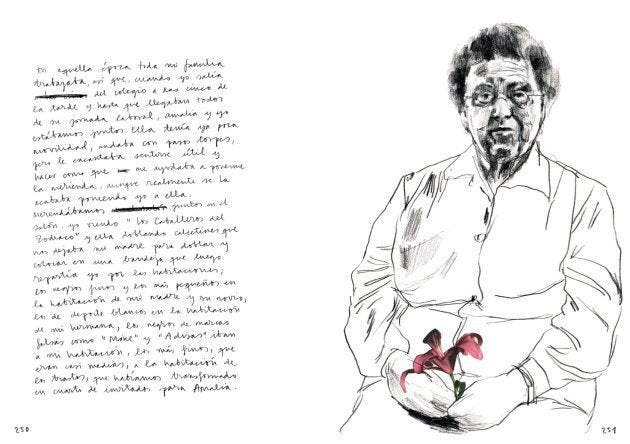 En aquella época toda mi familia
trabajaba, así que, cuando yo salía
del colegio a las cinco de
la tarde y hasta que llegaban todos
de su jornada laboral, amalia y yo
estábamos juntos. Ella tenía ya poca
movilidad, andaba con pasos torpes,
pero le encantaba sentirse útil y
hacer como que me ayudaba a ponerme
la merienda, aunque realmente se la
acababa poniendo yo a ella.
Merendábamos juntos en el
salón, yo viendo "Los Caballeros del
Zodiaco" y ella doblando calcetines que
nos dejaba mi madre para doblar y
colocar en una bandeja que luego
repartía yo por las habitaciones;
los negros finos y los más pequeños en
la habitación de mi madre y su novio,
los de deporte blancos en la habitación
de mi hermana, los negros de marcas
falsas como "Mike" y "Adisas" iban
a mi habitación, los más finos, que
eran casi medias, a la habitación de
los trastos, que habíamos transformado
en cuarto de invitados para Amalia.
250
251